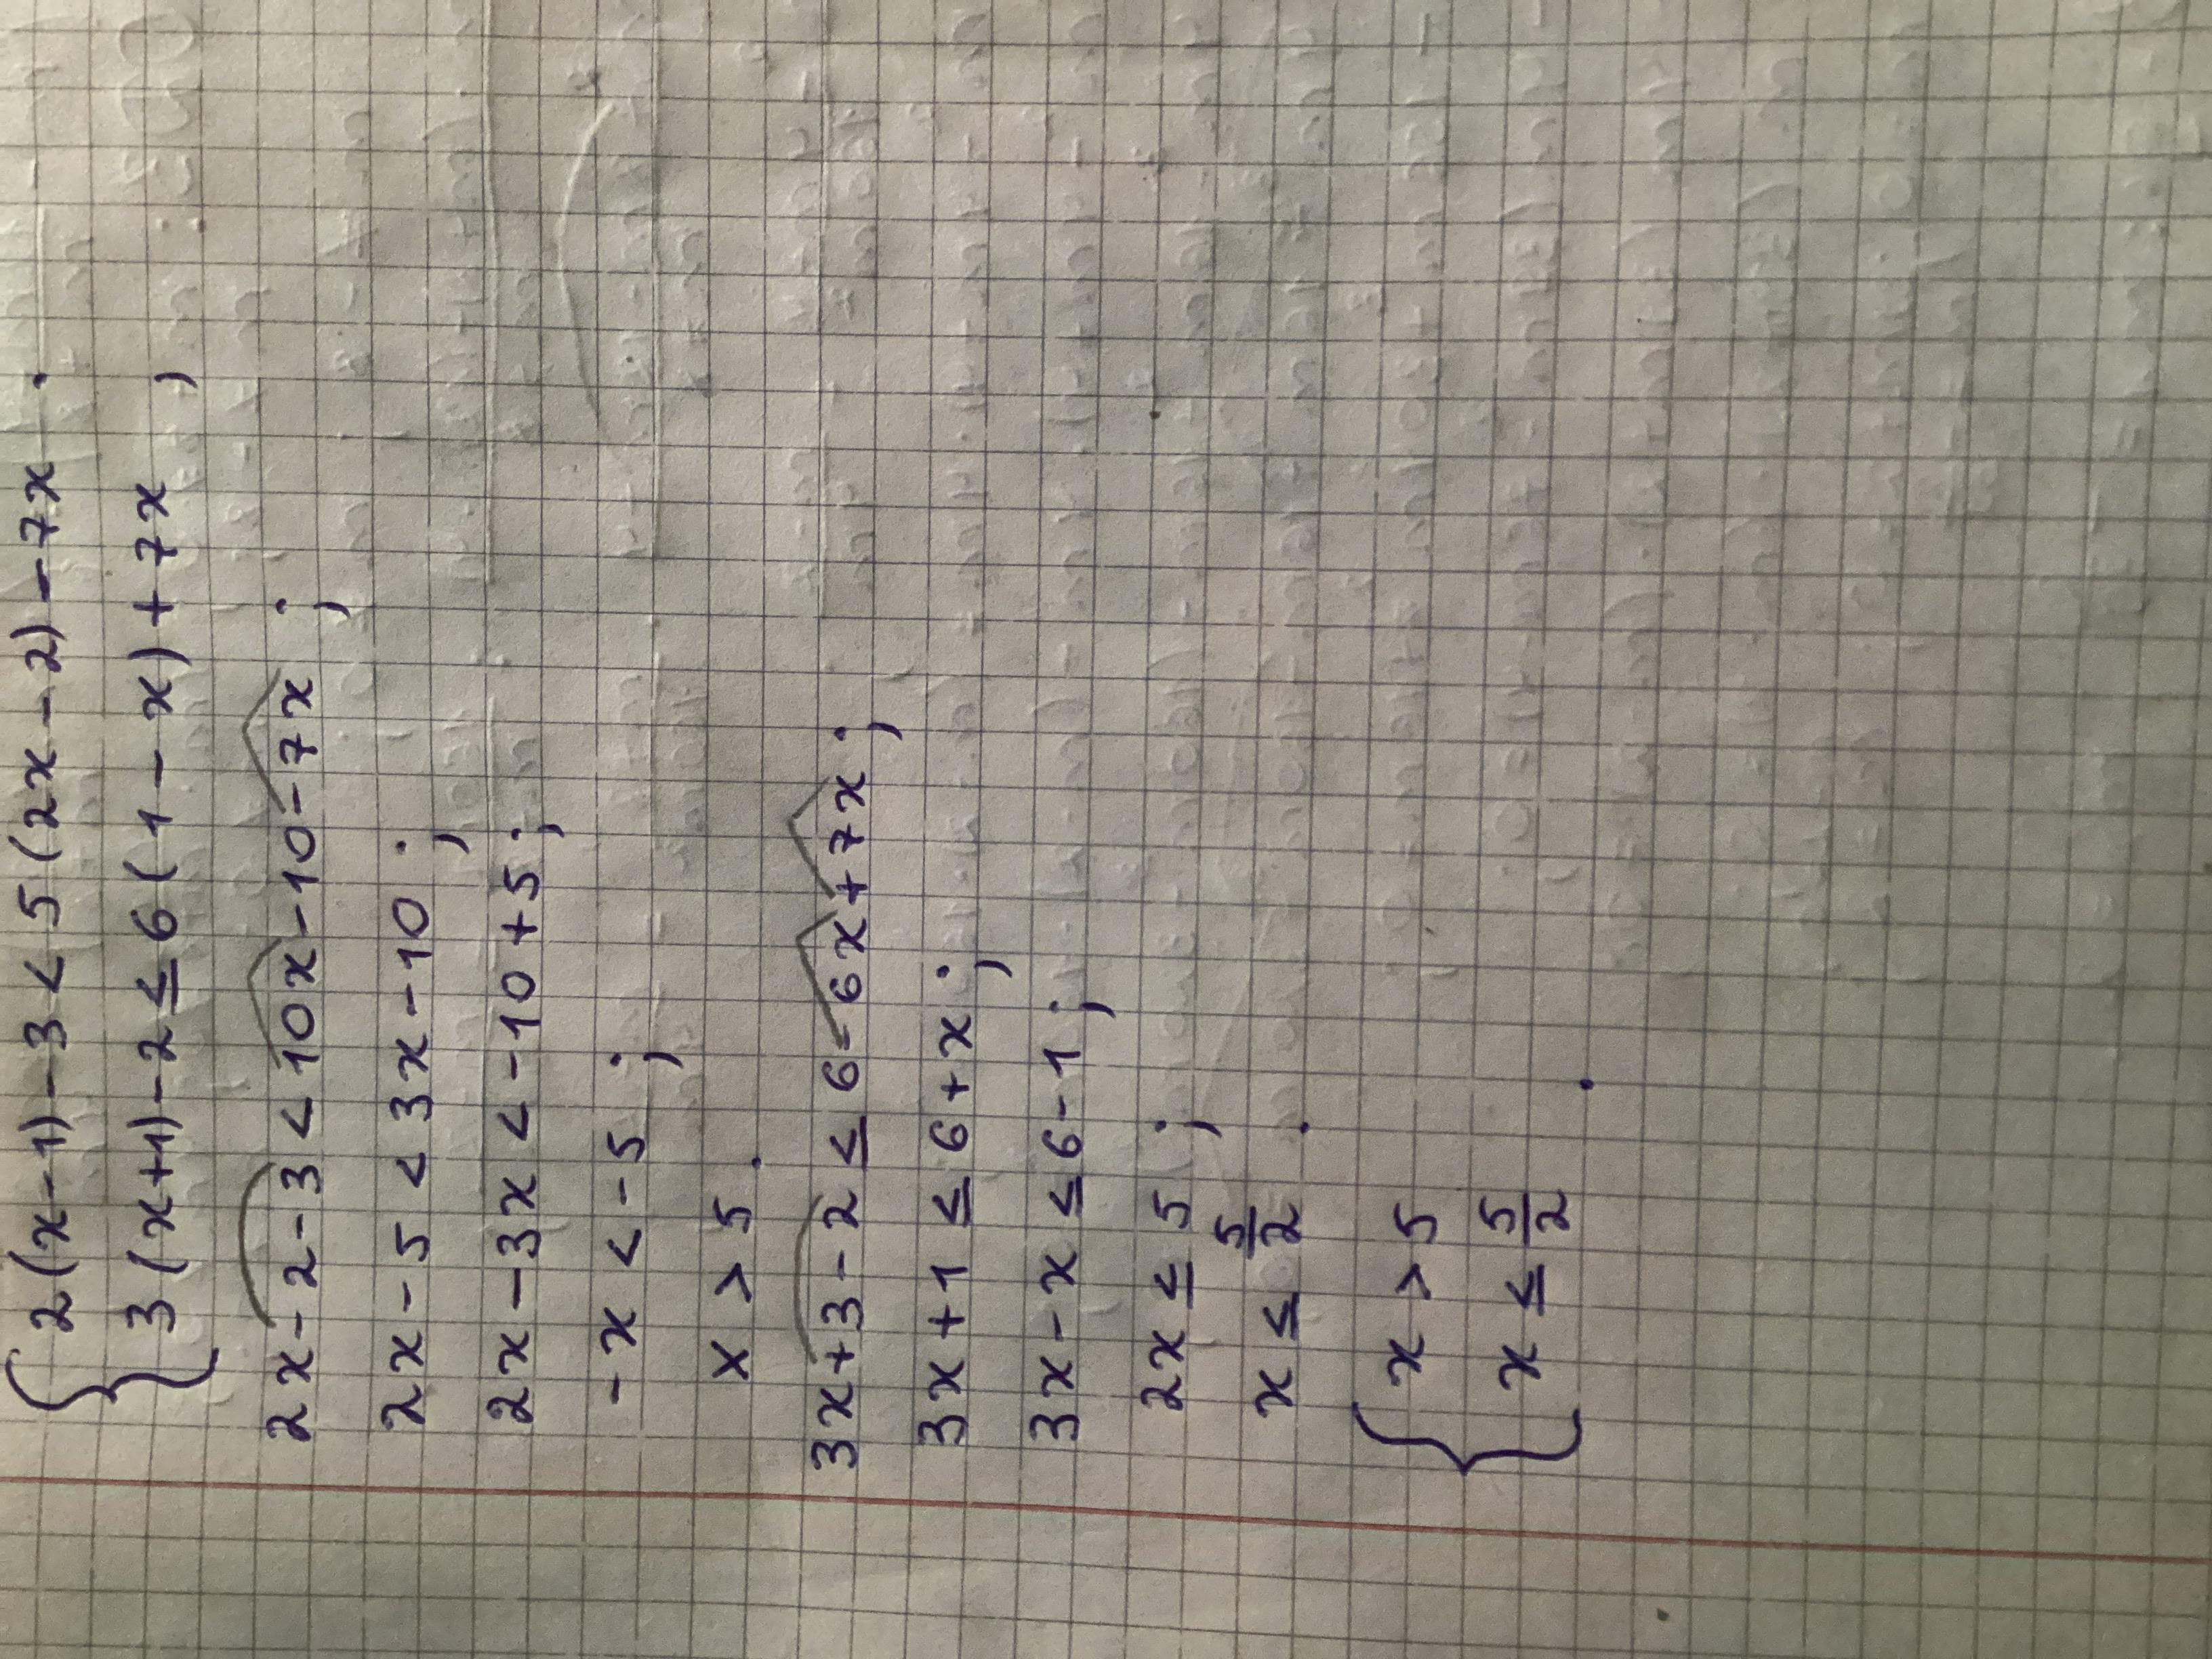 { 2(x-1)-3 < 5(2x-2)-7x
3(x+1)-2 ≤ 6(1-x)+7x ;
2x-2-3 < 10x-10-7x ;
2x-5 < 3x-10 ;
2x-3x < -10+5 ;
-x < -5 ;
x > 5 .
3x+3-2 ≤ 6-6x+7x ;
3x+1 ≤ 6+x ;
3x-x ≤ 6-1 ;
2x ≤ 5 ;
x ≤ 5/2 .
{ x > 5
x ≤ 5/2 .